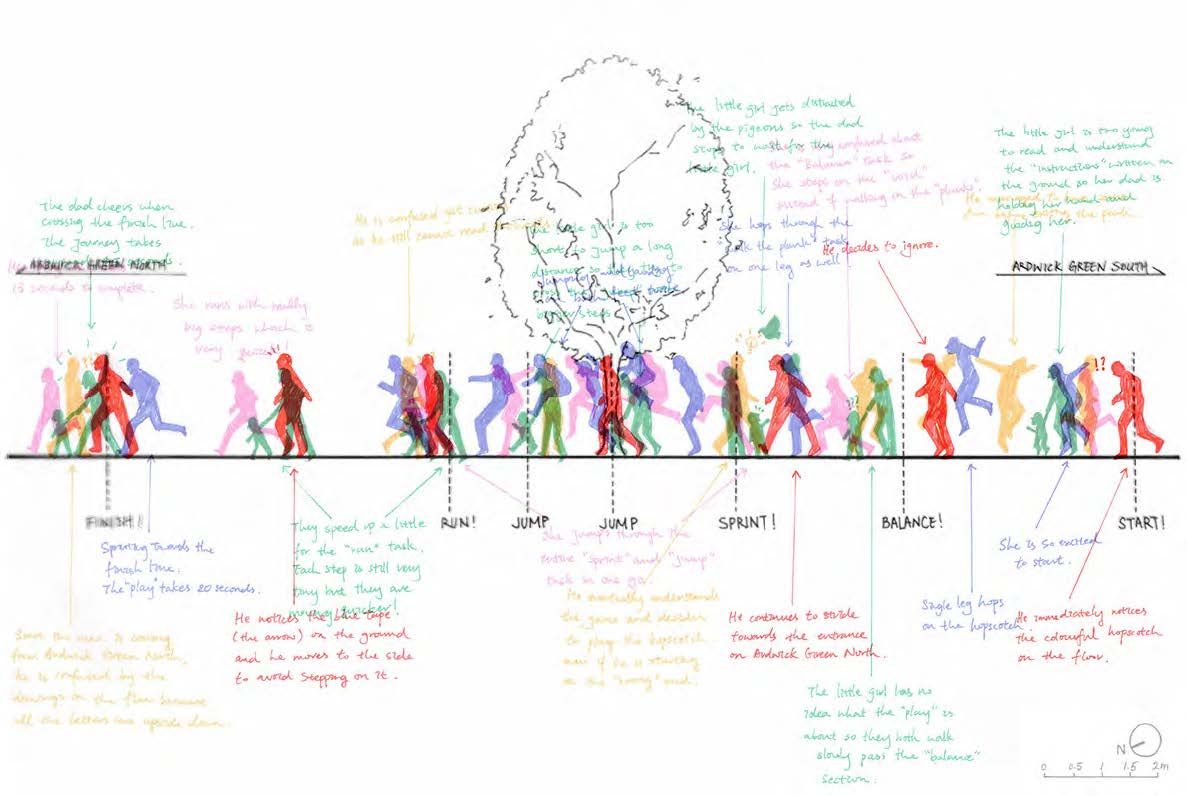 The dad cheers when
crossing the finish line.
The journey takes
ARDWICK GREEN NORTH
13 seconds to complete.
She runs with really
big steps which is
very quick!
He is confused yet
as he still cannot read
The little girl is too
short to jump a long
distance so
bigger steps
The little girl gets distracted
by the pigeons so the dad
stops to wait for the
little girl.
confused about
the "Balance" task so
She steps on the "void"
instead of walking on the "planks".
She hops through the
"walk the plank" task
on one leg as well.
He decides to ignore.
The little girl is too young
to read and understand
the "instructions" written on
the ground so her dad is
holding her hand and
guiding her.
the park.
ARDWICK GREEN SOUTH
!!
!?
FINISH!
RUN!
JUMP
JUMP
SPRINT!
BALANCE!
START!
Sprinting towards the
finish line.
The "play" takes 20 seconds.
They speed up a little
for the "run" task.
Each step is still very
tiny but they are
moving quicker!
She jumps through the
entire "sprint" and "jump"
task in one go.
She is so excited
to start.
Single leg hops
on the hopscotch
He immediately notices
the colourful hopscotch
on the floor.
He notices the blue tape
(the arrow) on the ground
and he moves to the side
to avoid stepping on it.
He eventually understands
the game and decides
to play the hopscotch
even if he is starting
on the "wrong" end.
He continues to stride
towards the entrance
on Ardwick Green North.
Since the man is coming
from Ardwick Green North,
he is confused by the
drawings on the floor because
all the letters are upside down.
The little girl has no
idea what the "play" is
about so they both walk
slowly pass the "balance"
section.
N
0 0.5 1 1.5 2m